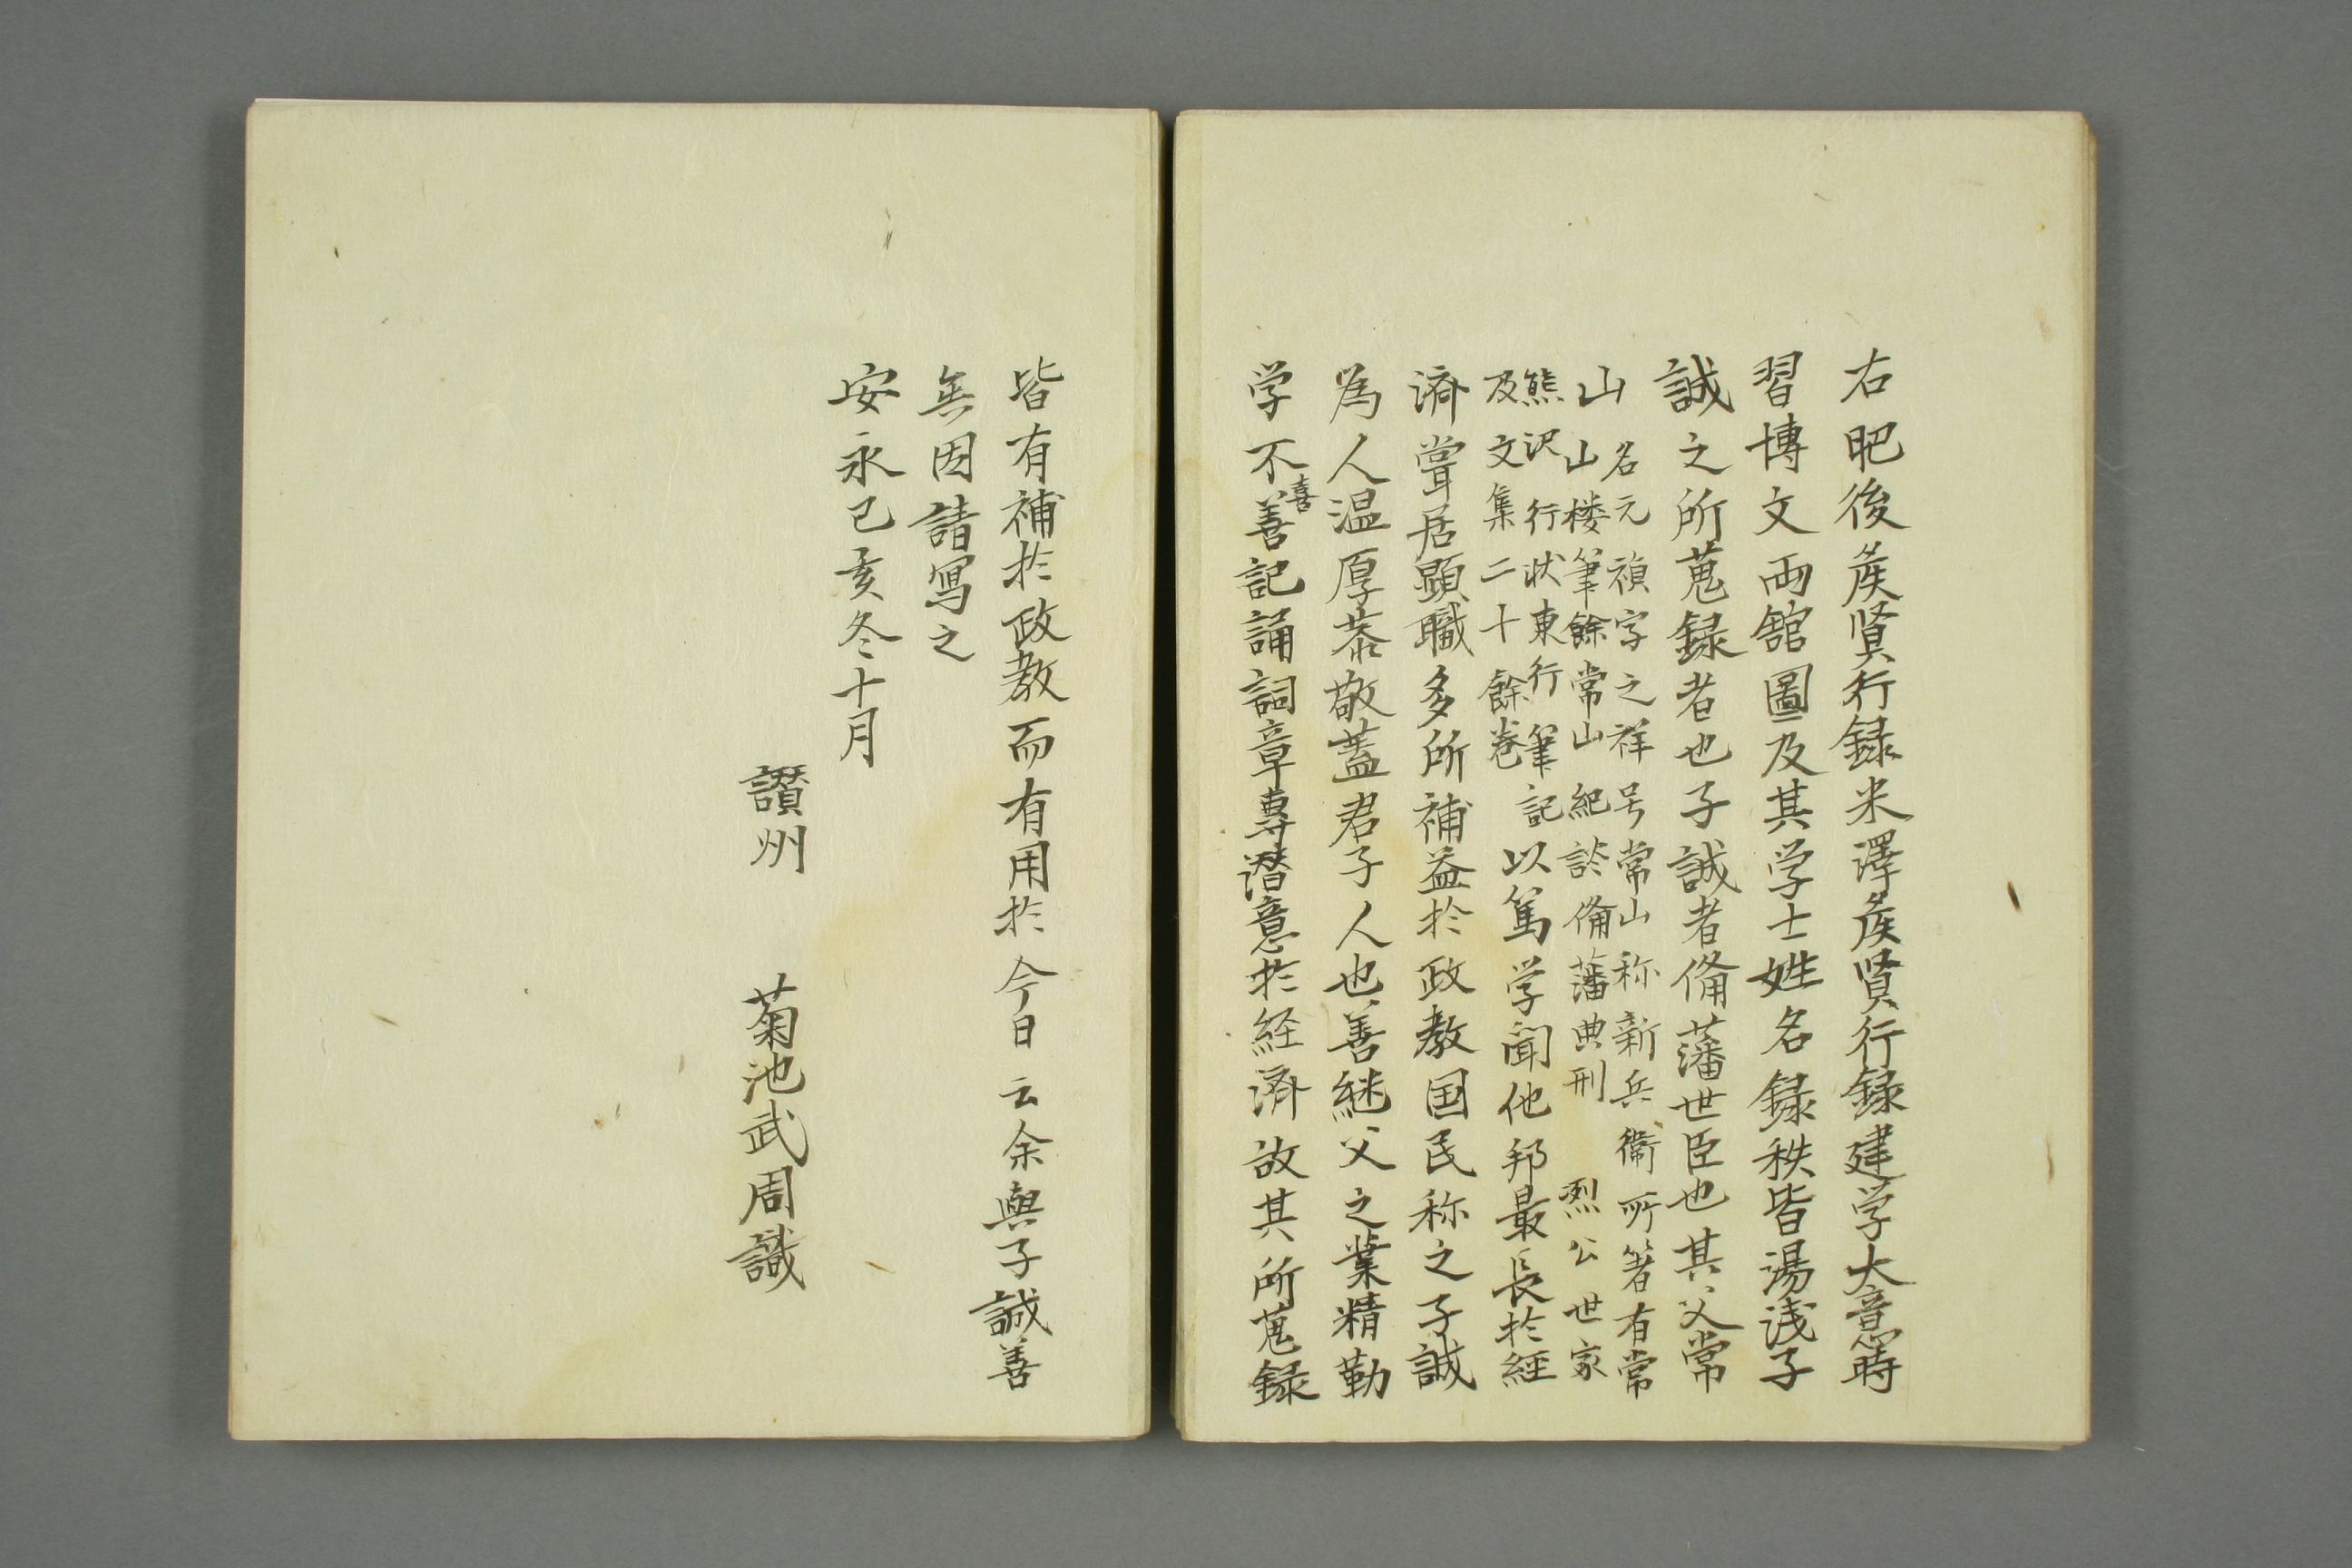 右肥後矦賢行録米澤矦賢行録建学大意時
習博文両舘圖及其学士姓名録秩皆湯浅子
誠之所蒐録者也子誠者俻藩世臣也其父常
山
名元禎字之祥号常山称新兵衞所著有常
山楼筆餘常山紀談俻藩典刑　烈公世家
熊沢行状東行筆記
及文集二十餘巻
以篤学聞他邦最長於經
済甞居顕職多所補益於政教国民称之子誠
為人温厚恭敬蓋君子人也善継父之業精勤
学不善記誦詞章専潜意於経済故其所蒐録
喜
皆有補於政教而有用於今日云余與子誠善
矣因請寫之
安永己亥冬十月
讃州　菊池武周識